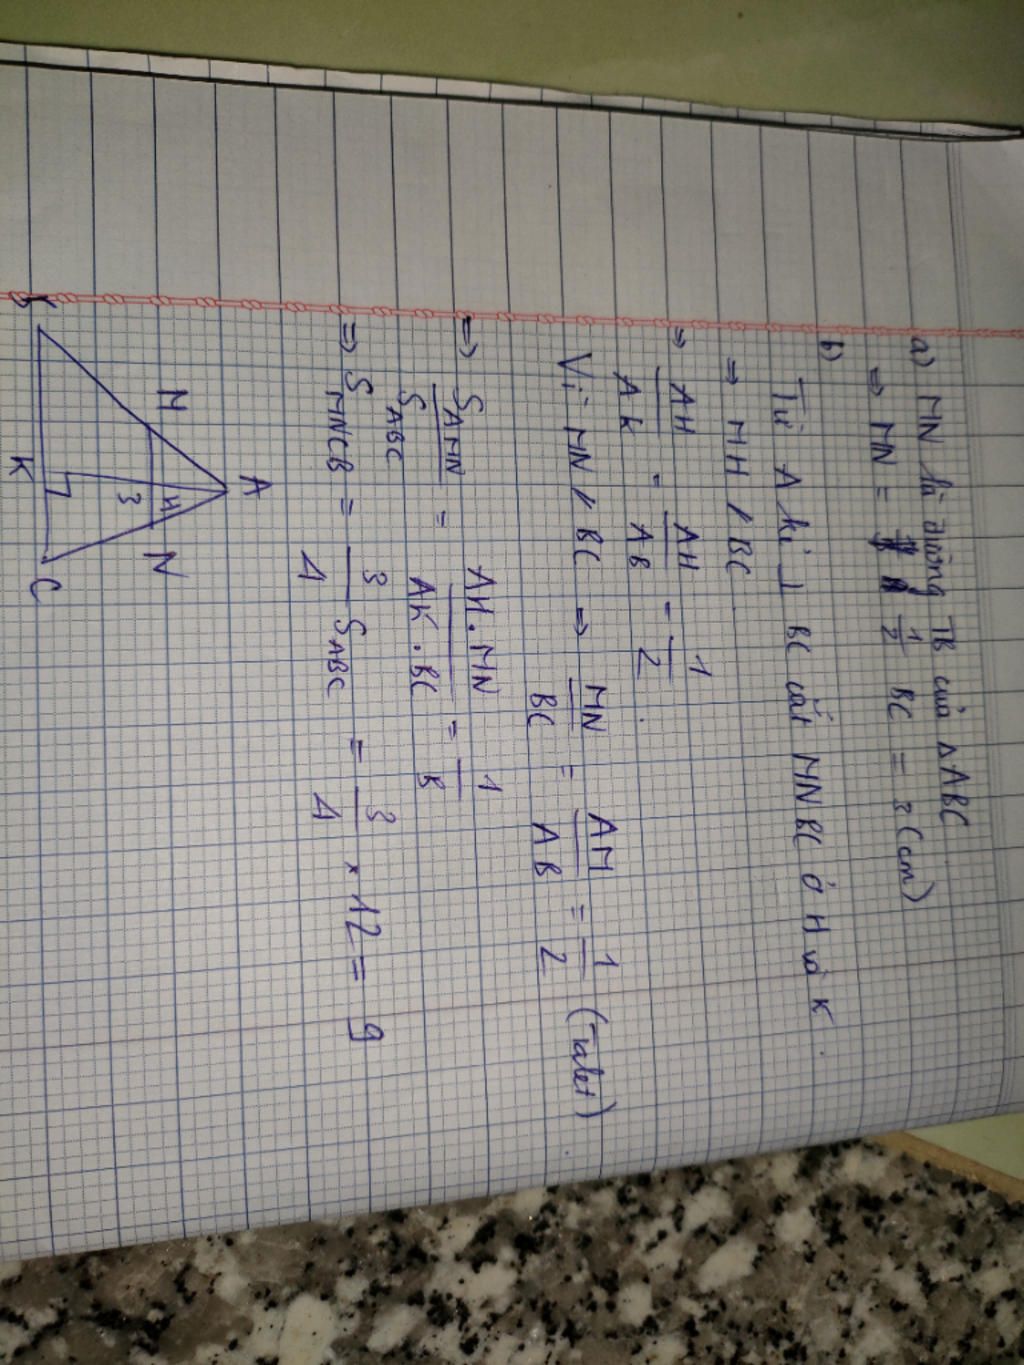 a) MN là đường TB của △ABC
⇒ MN = 1/2 BC = 3 (cm)
b)
Từ A kẻ ⊥ BC cắt MN BC ở H và K
⇒ MH // BC
⇒ AH/AK = AH/AB = 1/2
Vì MN // BC ⇒ MN/BC = AM/AB = 1/2 (Talet)
⇒ S_AMN/S_ABC = AH.MN/AK.BC = 1/
⇒ S_MNCB = 3/4 S_ABC = 3/4 × 12 = 9
A
M H N
3
K C